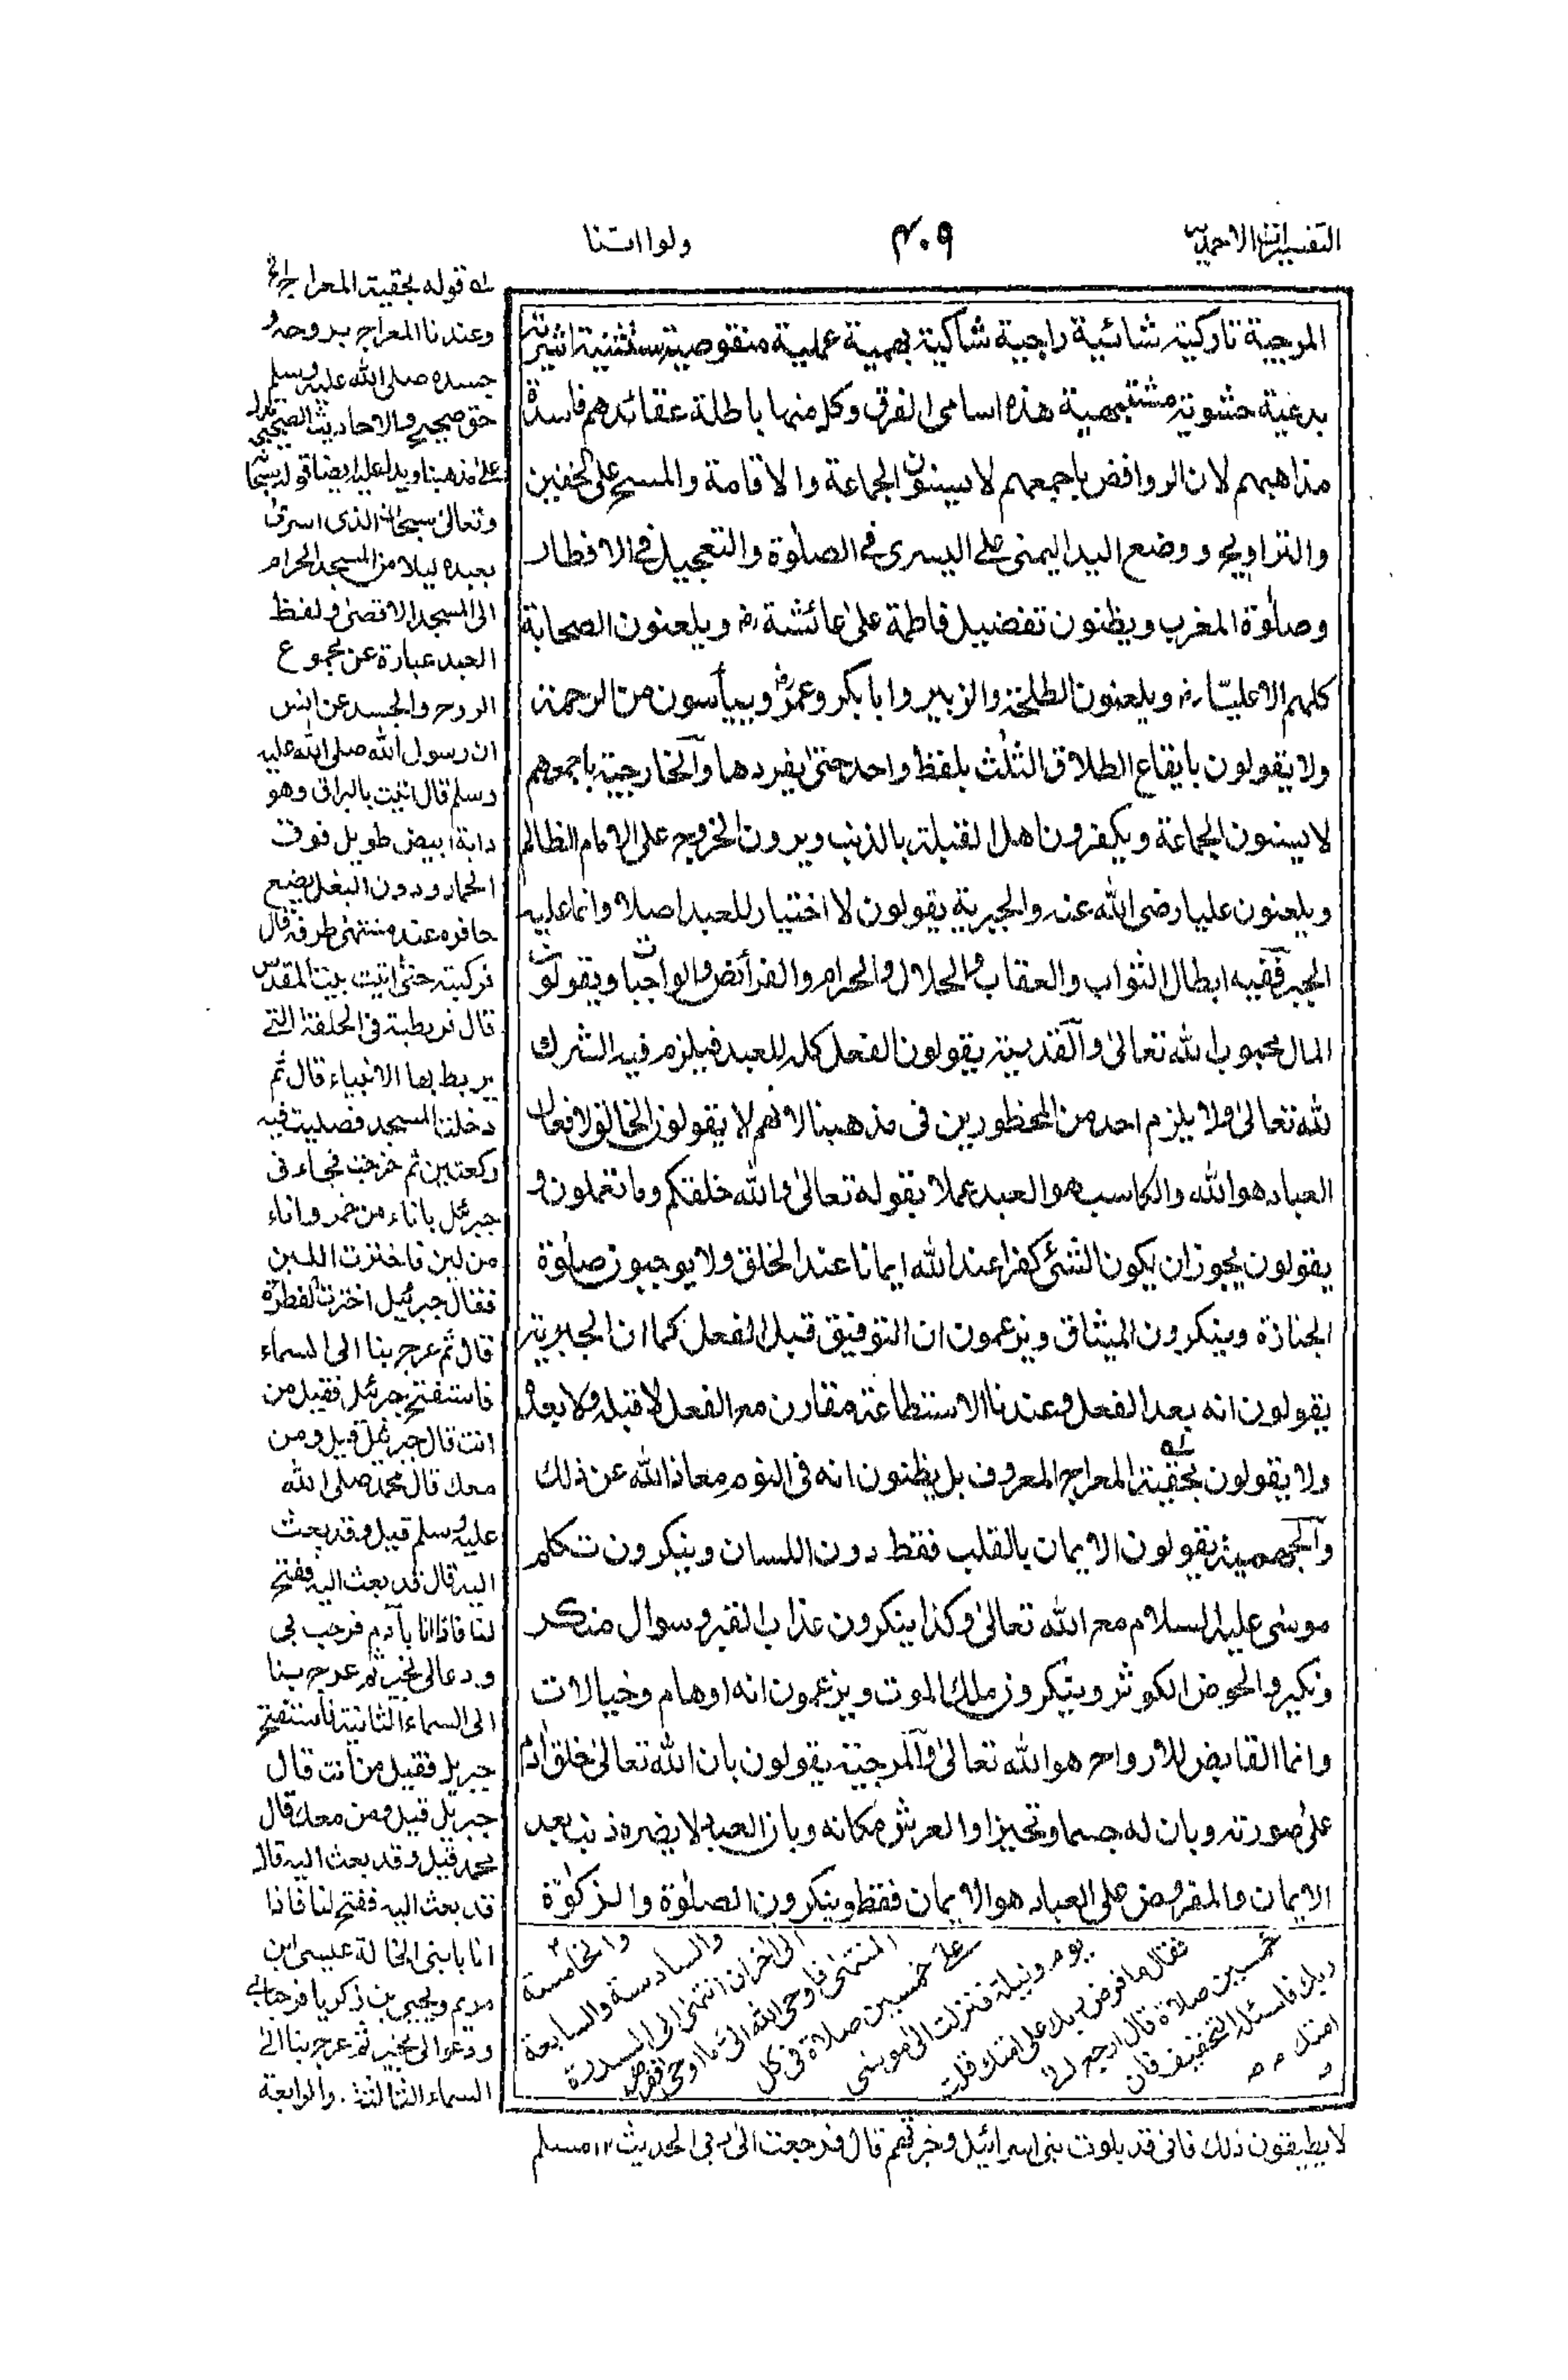 التفسيرات الاحمدية
٤٠٩
ولو اننا
المرجية تاركية شائية راجية شاكية بهمية عملية منقوصية ستثنية اثيرية
بدعية حشوية مشتبهية هذه اسامى الفرق وكل منها باطلة عقائدهم فاسدة
مذاهبهم لان الروافض باجمعهم لا يسنون الجماعة والاقامة والمسح على الخفين
والتراويح ووضع اليد اليمنى على اليسرى فى الصلوٰة والتعجيل فى الافطار
وصلوٰة المغرب ويظنون تفضيل فاطمة على عائشة رض ويلعنون الصحابة
كلهم الا عليّا رض ويلعنون لطلحة والزبير وابا بكر وعمر رض وييأسون من الرحمة
ولا يقولون بايقاع الطلاق الثلث بلفظ واحد حتى يفردها والخارجية باجمعهم
لا يسنون الجماعة ويكفرون اهل القبلة بالذنب ويرون الخروج على الامام الظالم
ويلعنون عليا رضى الله عنه والجبرية يقولون لا اختيار للعبد اصلا وانما عليه
الجبر ففيه ابطال الثواب والعقاب والحلال والحرام والفرائض والواجبات ويقولون
المال محبوب الله تعالىٰ والقدرية يقولون الفعل كله للعبد فيلزم فيه الشرك
لله تعالىٰ ولا يلزم احد من المحظورين فى مذهبنا لانهم لا يقولون الخالق لافعال
العباد هو الله والكاسب هو العبد عملا بقوله تعالىٰ والله خلقكم وما تعملون و
يقولون يجوز ان يكون الشئ كفرا عند الله ايمانا عند الخلق ولا يوجبون صلوٰة
الجنازة وينكرون الميثاق ويزعمون ان التوفيق قبل الفعل كما ان الجبرية
يقولون انه بعد الفعل وعندنا الاستطاعة مقارن مع الفعل لا قبله ولا بعده
ولا يقولون بحقية المعراج المعروف بل يظنون انه فى النوم معاذ الله عن ذلك
والجهمية يقولون الايمان بالقلب فقط دون اللسان وينكرون تكلم
موسى عليه السلام مع الله تعالىٰ وكذا ينكرون عذاب القبر وسوال منكر
ونكير والحوض الكوثر وينكرون ملك الموت ويزعمون انه اوهام وخيالات
وانما القابض للارواح هو الله تعالىٰ والمرجية يقولون بان الله تعالىٰ خلق ادم
على صورته وبان له جسما وتحيزا والعرش مكانه وبان العبد لا يضره ذنب بعد
الايمان والمفروض على العباد هو الايمان فقط وينكرون الصلوٰة والزكوٰة
له قوله بحقية المعراج الخ
وعندنا المعراج بروحه و
جسده صلى الله عليه وسلم
حق صحيح والاحاديث الصحيحة تدل
على مذهبنا ويدل عليه ايضا قوله سبحانه
وتعالىٰ سبحان الذى اسرىٰ
بعبده ليلا من المسجد الحرام
الى المسجد الاقصىٰ ولفظ
العبد عبارة عن مجموع
الروح والجسد عن انس
ان رسول الله صلى الله عليه
وسلم قال اتيت بالبراق وهو
دابة ابيض طويل فوق
الحمار ودون البغل يضع
حافره عند منتهىٰ طرفه قال
فركبته حتىٰ اتيت بيت المقدس
قال فربطته فى الحلقة التى
يربط بها الانبياء قال ثم
دخلنا المسجد فصليت فيه
ركعتين ثم خرجت فجاءنى
جبرئل باناء من خمر واناء
من لبن فاخترت اللبن
فقال جبرئيل اخترت الفطرة
قال ثم عرج بنا الى السماء
فاستفتح جبرئل فقيل من
انت قال جبرئل قيل ومن
معك قال محمد صلى الله
عليه وسلم قيل وقد بعث
اليه قال قد بعث اليه ففتح
لنا فاذا انا بآدم فرحب بى
ودعا لى بخير ثم عرج بنا
الى السماء الثانية فاستفتح
جبريل فقيل من انت قال
جبريل قيل ومن معك قال
محمد قيل وقد بعث اليه قال
قد بعث اليه ففتح لنا فاذا
انا بابنى الخالة عيسى ابن
مريم ويحيى بن زكريا فرحبا بى
ودعوا لى بخير ثم عرج بنا الى
السماء الثالثة. والرابعة
والخامسة
والسادسة والسابعة
الى اخر ان انتهىٰ الى السدرة
المنتهىٰ فاوحى الله الىّ ما اوحى ففرض
علىّ خمسين صلاة فى كل
يوم وليلة فنزلت الى موسىٰ
فقال ما فرض ربك على امتك قلت
خمسين صلاة قال ارجع الى
ربك فاسئله التخفيف فان
امتك
لا يطيقون ذلك فانى قد بلوت بنى اسرائيل وخبرتهم قال فرجعت الى ربى الحديث ١٢ مسلم